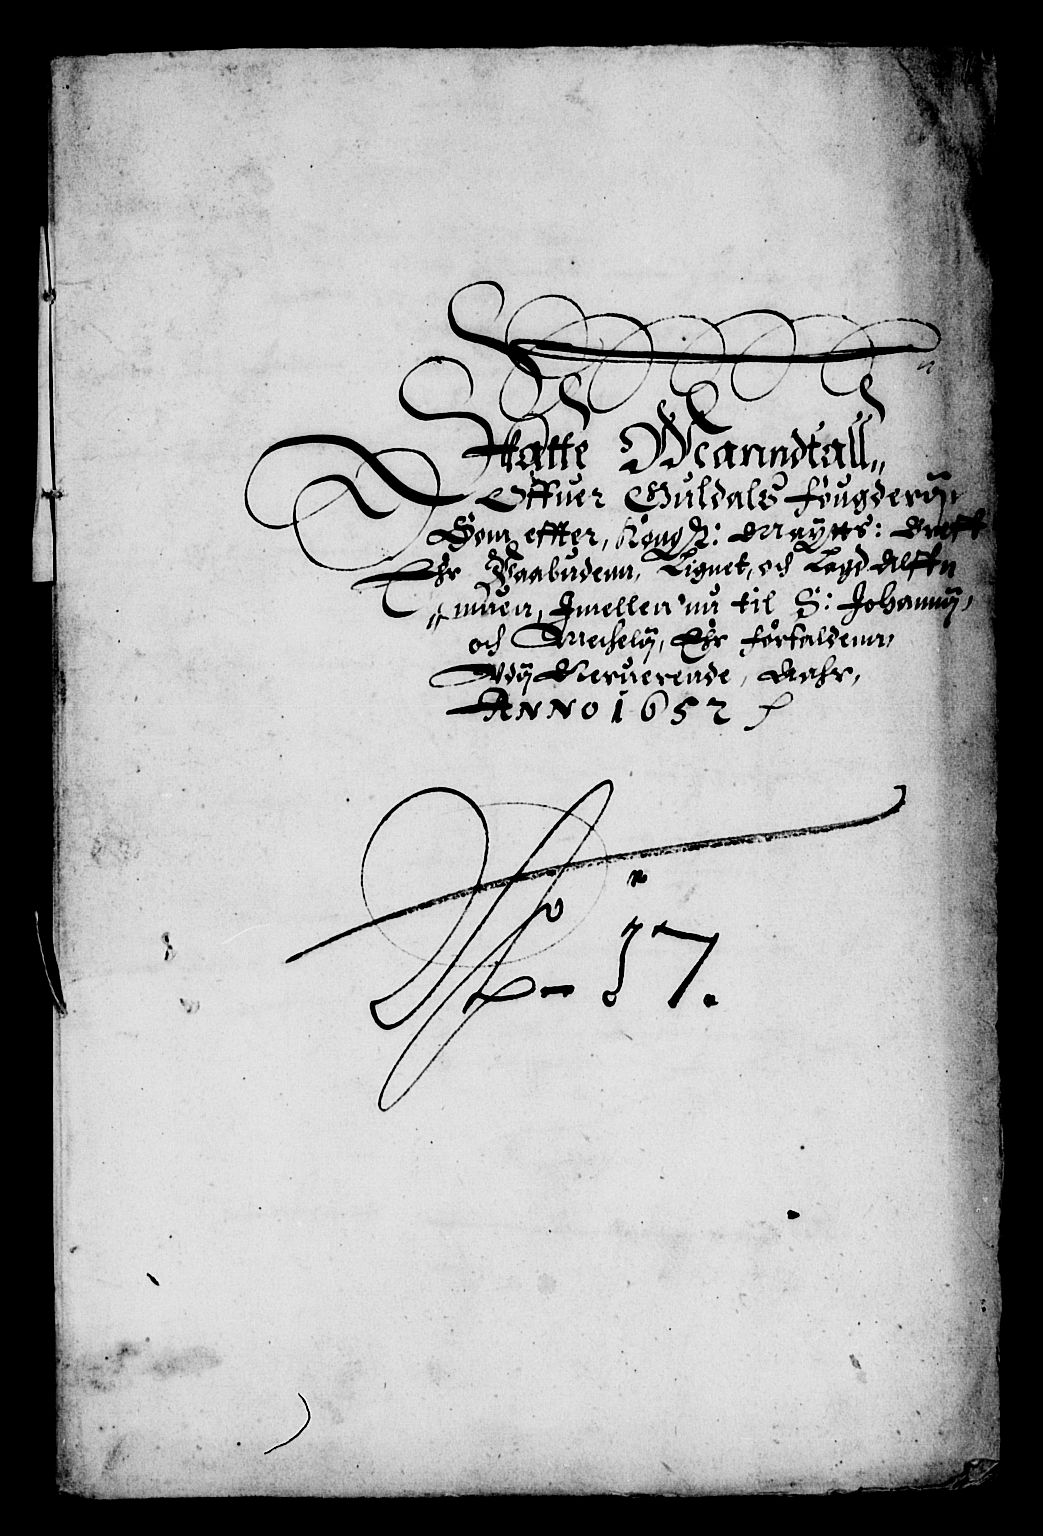 Skatte Manndtall,,
Offuer Guldals fougderÿ,
Som effter, Kong: Maÿtts: Breff
Ehr Paabudenn, Lignet, och Lagd
muen, Imellen nu til S: Johannÿ,
och Michelÿ, Ehr forfaldenn,
Udÿ Neruerende, Aahr,
ANNO 1652
No 37.